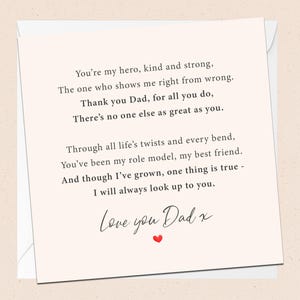 You're my hero, kind and strong,
The one who shows me right from wrong.
Thank you Dad, for all you do,
There's no one else as great as you.
Through all life's twists and every bend,
You've been my role model, my best friend.
And though I've grown, one thing is true -
I will always look up to you.
Love you Dad x